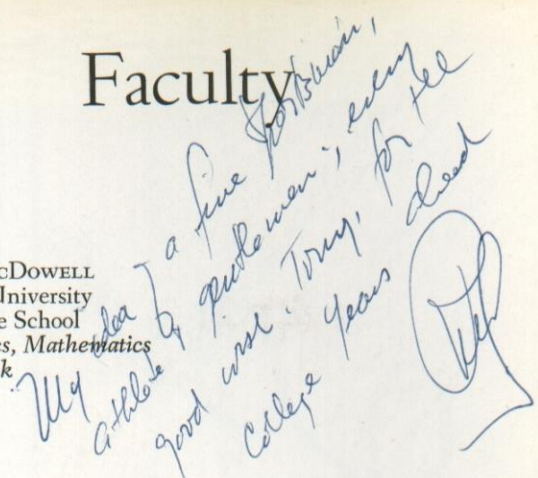 Faculty
cDowell
University
e School
es, Mathematics
k
My idea of a fine sportsman,
athlete & gentleman; every
good wish, Tony, for the
college years ahead